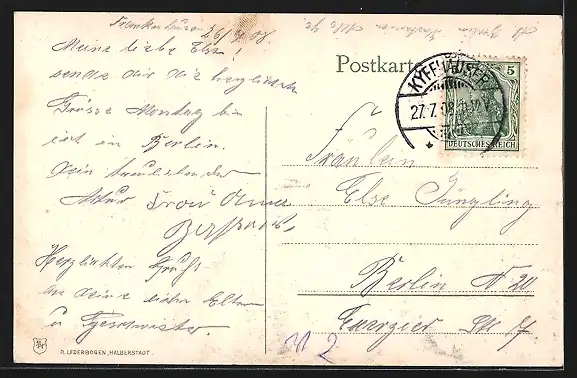 Frankenhausen 26/7 08.
Meine liebe Else!
sende dir die herzlichsten
Grüsse Montag bin
ich in Berlin.
Dein
Artur Frau Anna
Herzlichen Gruß
an deine lieben Eltern
u Geschwister.
R. LEDERBOGEN, HALBERSTADT.
Postkarte
KYFFHÄUSER
27.7.08
5
DEUTSCHES REICH
Fräulein
Else Jüngling
Berlin N 20